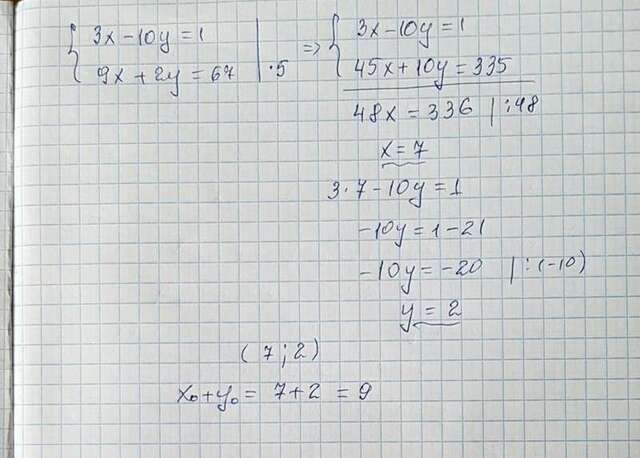 3x-10y=1
9x+2y=67 | ·5
=> 3x-10y=1
45x+10y=335
48x=336 | :48
x=7
3·7-10y=1
-10y=1-21
-10y=-20 | :(-10)
y=2
(7;2)
x₀+y₀=7+2=9